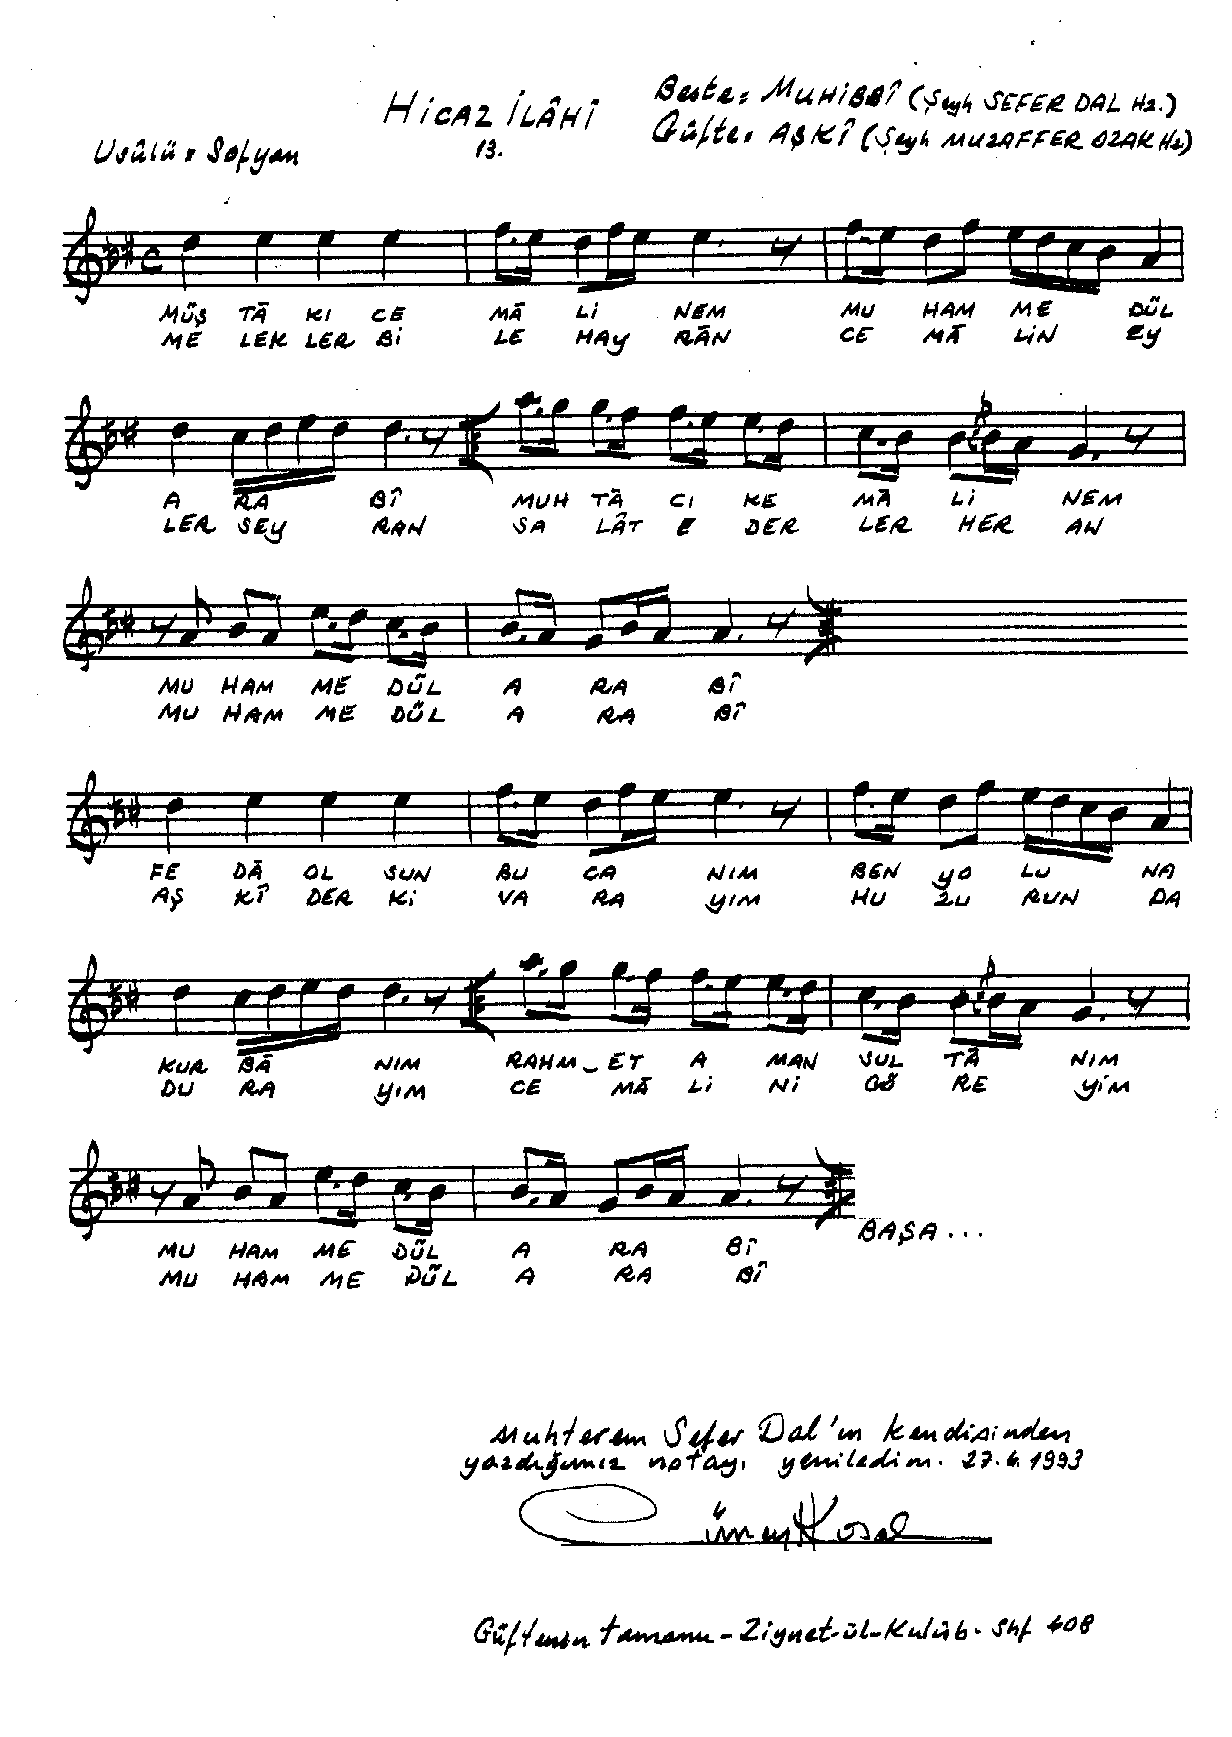 HİCAZ İLÂHÎ
13.
Beste: MUHİBBÎ (Şeyh SEFER DAL Hz.)
Güfte: AŞKÎ (Şeyh MUZAFFER OZAK Hz)
Usûlü: Sofyan
MÜŞ TÂ KI CE MÂ Lİ NEM MU HAM ME DÜL
ME LEK LER Bİ LE HAY RÂN CE MÂ LİN EY
A RA BÎ MUH TÂ CI KE MÂ Lİ NEM
LER SEY RAN SA LÂT E DER LER HER AN
MU HAM ME DÜL A RA BÎ
MU HAM ME DÜL A RA BÎ
FE DÂ OL SUN BU CA NIM BEN YO LU NA
AŞ KÎ DER Kİ VA RA YIM HU ZU RUN DA
KUR BÂ NIM RAHM_ET A MAN SUL TÂ NIM
DU RA YIM CE MÂ Lİ Nİ GÖ RE YİM
MU HAM ME DÜL A RA BÎ
MU HAM ME DÜL A RA BÎ
BAŞA...
Muhterem Sefer Dal'ın kendisinden
yazdığımız notayı yeniledim. 27.6.1993
Cüneyt Kosal
Güftenin tamamı - Ziynet-ül-Kulûb - Shf 408